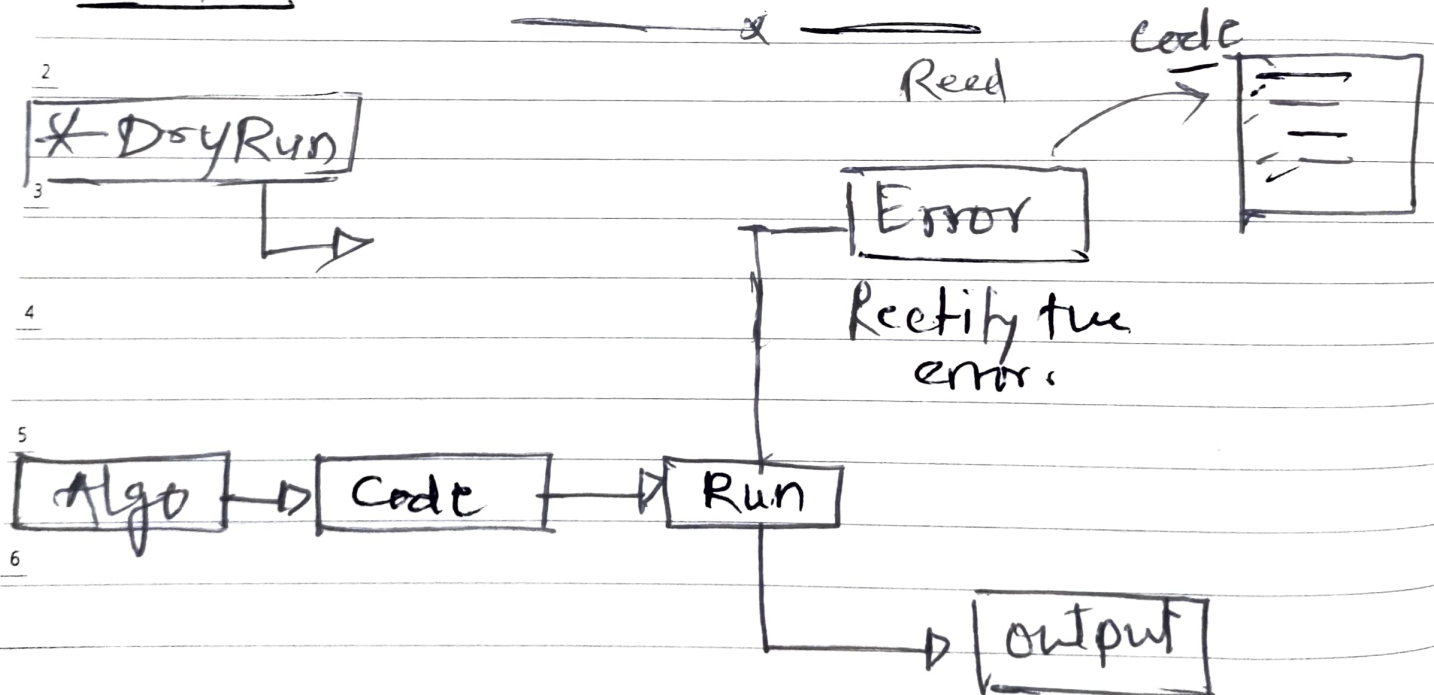 x
Code
2
Reed
* DryRun
3
Error
4
Rectify the
error.
5
Algo
Code
Run
6
output